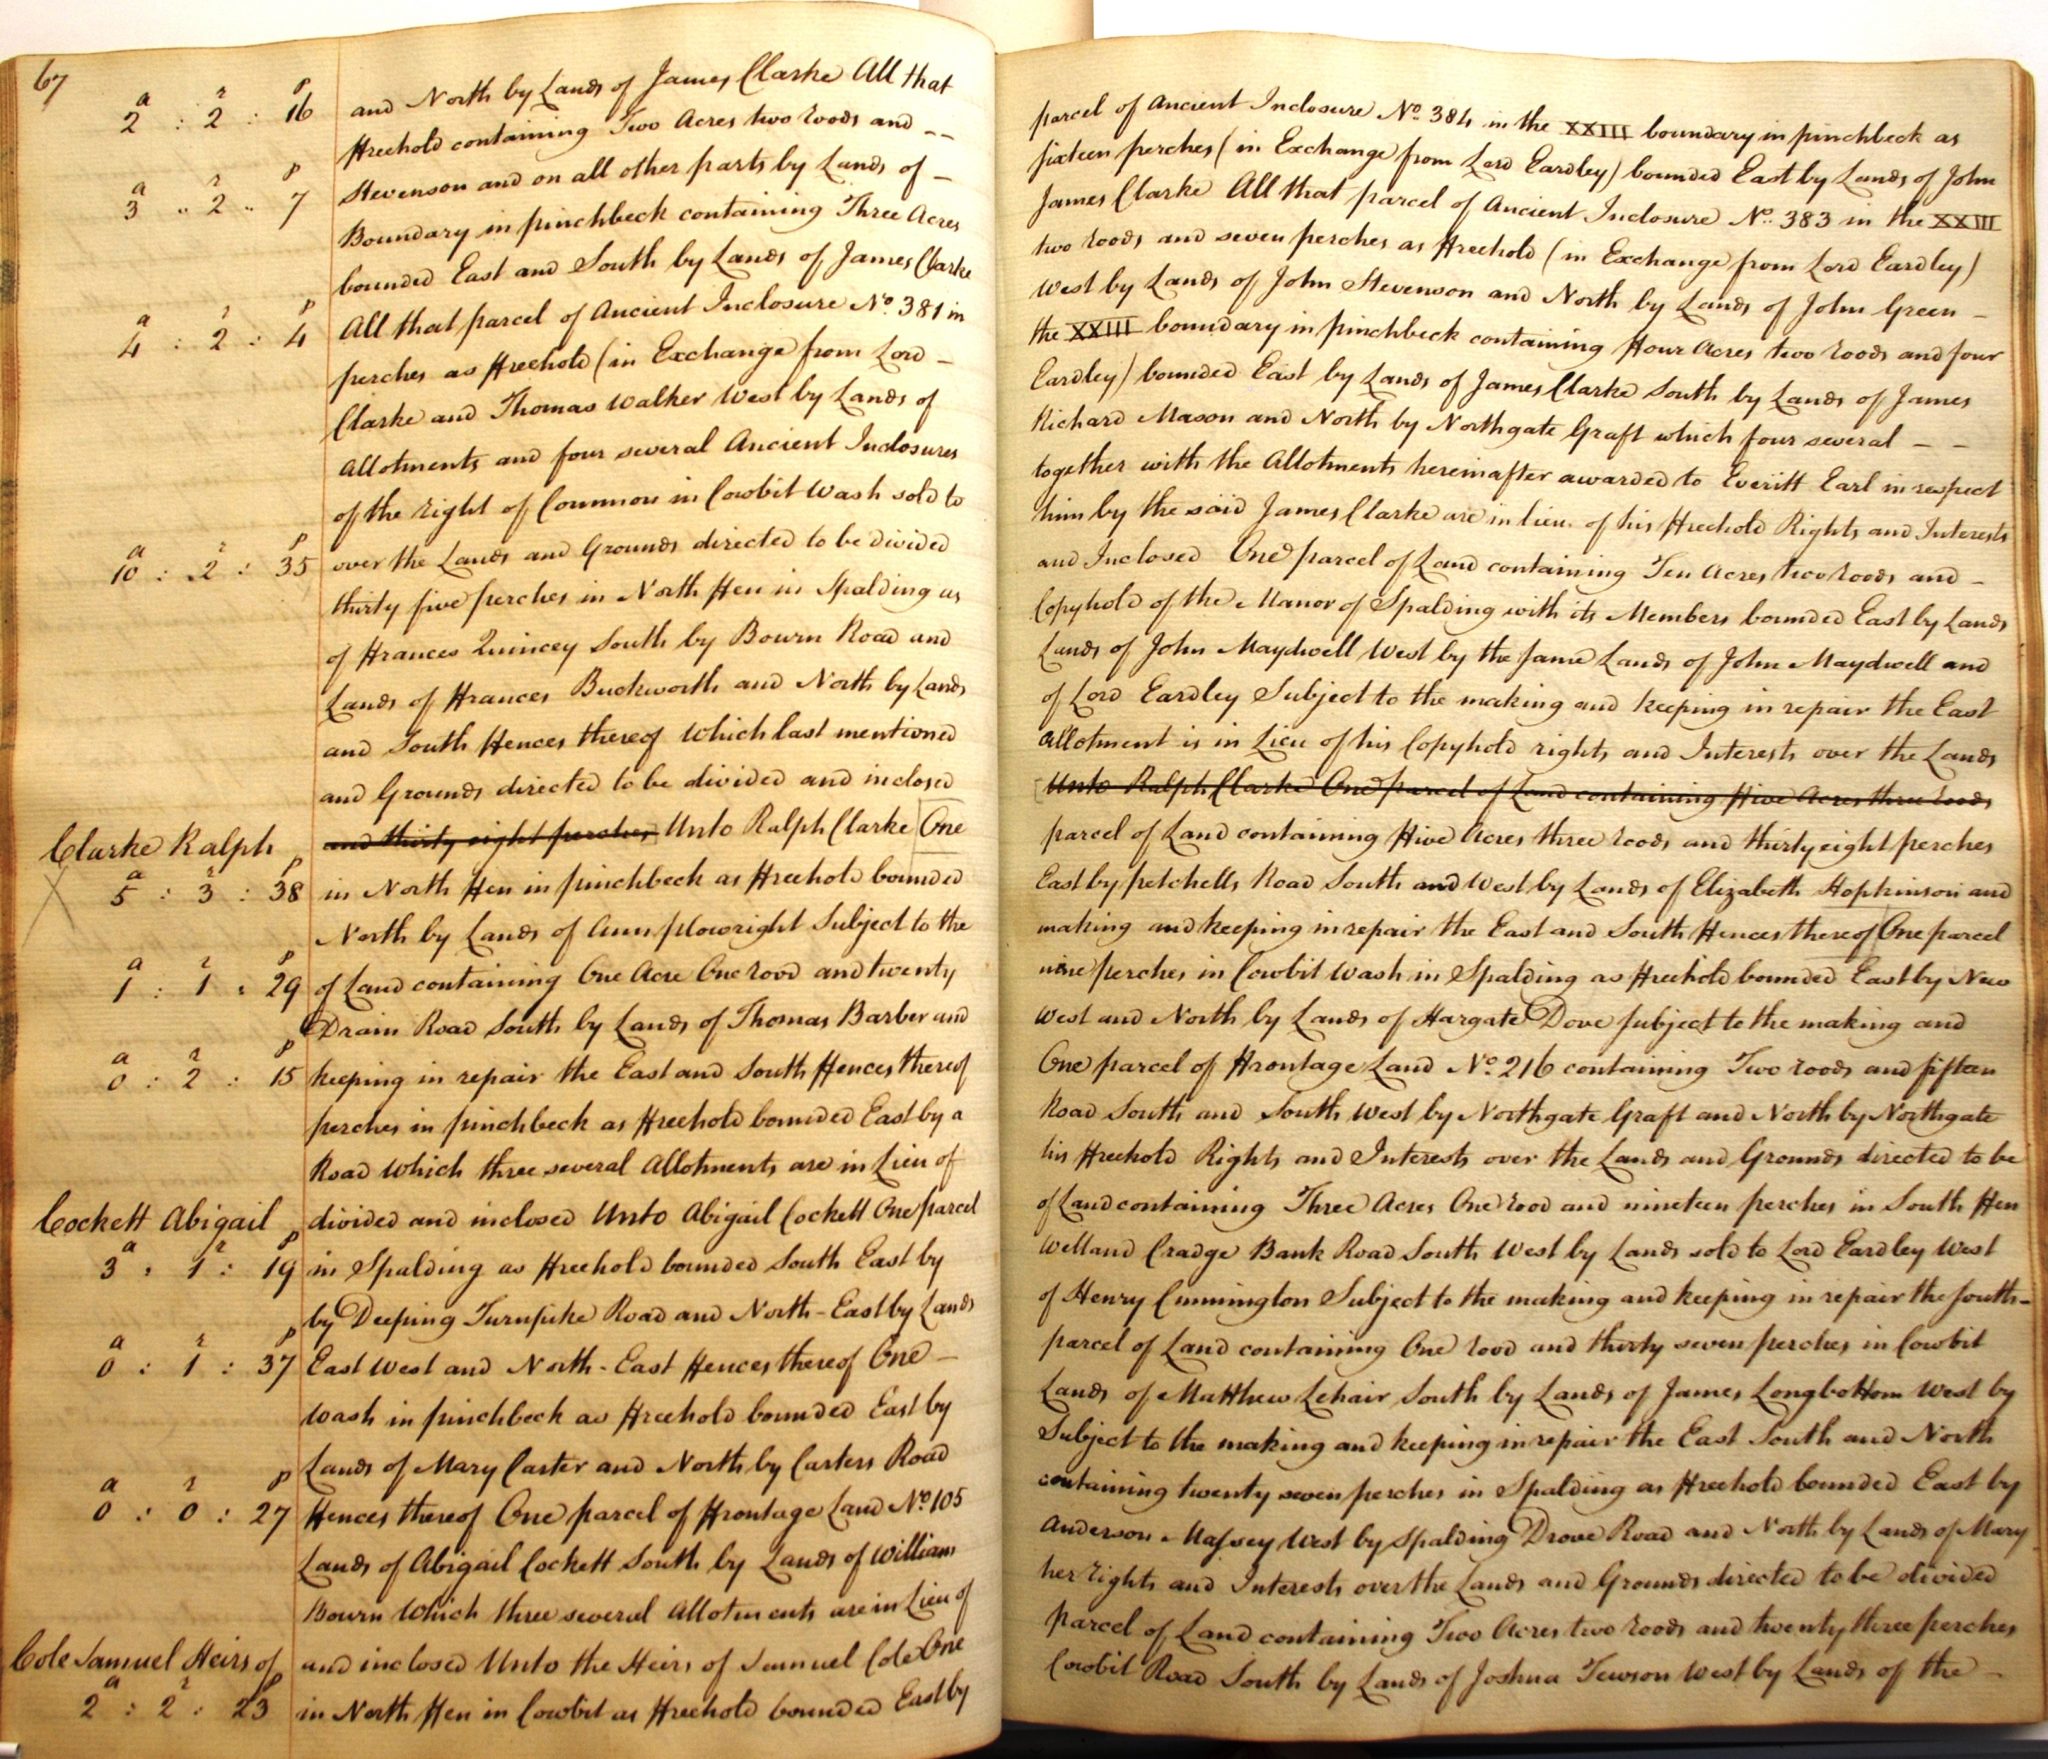 67
a r p
2 : 2 : 16 and North by Lands of James Clarke All that parcel of Ancient Inclosure No. 384 in the XXIII boundary in pinchbeck as
Freehold containing Two Acres two roods and -- sixteen perches (in Exchange from Lord Eardley) bounded East by Lands of John
a r p
3 .. 2 .. 7 Stevenson and on all other parts by Lands of - James Clarke All that parcel of Ancient Inclosure No. 383 in the XXIII
Boundary in pinchbeck containing Three Acres two roods and seven perches as Freehold (in Exchange from Lord Eardley)
bounded East and South by Lands of James Clarke West by Lands of John Stevenson and North by Lands of John Green -
a r p
4 : 2 : 4 All that parcel of Ancient Inclosure No. 381 in the XXIII boundary in pinchbeck containing Four Acres two roods and four
perches as Freehold (in Exchange from Lord - Eardley) bounded East by Lands of James Clarke South by Lands of James
Clarke and Thomas Walker West by Lands of Richard Mason and North by Northgate Graft which four several - -
Allotments and four several Ancient Inclosures together with the Allotments hereinafter awarded to Everitt Earl in respect
of the right of Common in Cowbit Wash sold to him by the said James Clarke are in lieu of his Freehold Rights and Interests
a r p
10 : 2 : 35 over the Lands and Grounds directed to be divided and Inclosed One parcel of Land containing Ten Acres two roods and -
thirty five perches in North Fen in Spalding as Copyhold of the Manor of Spalding with its Members bounded East by Lands
of Frances Quincey South by Bourn Road and Lands of John Maydwell West by the same Lands of John Maydwell and
Lands of Frances Buckworth and North by Lands of Lord Eardley Subject to the making and keeping in repair the East
and South Fences thereof Which last mentioned Allotment is in Lieu of his Copyhold rights and Interests over the Lands
and Grounds directed to be divided and inclosed Unto Ralph Clarke One parcel of Land containing Five Acres three roods
Clarke Ralph and thirty eight perches Unto Ralph Clarke One parcel of Land containing Five Acres three roods and thirty eight perches
a r p
5 : 3 : 38 in North Fen in pinchbeck as Freehold bounded East by petchells Road South and West by Lands of Elizabeth Hopkinson and
North by Lands of Ann plowright Subject to the making and keeping in repair the East and South Fences thereof One parcel
a r p
1 : 1 : 29 of Land containing One Acre One rood and twenty nine perches in Cowbit Wash in Spalding as Freehold bounded East by New
Drain Road South by Lands of Thomas Barber and West and North by Lands of Hargate Dove subject to the making and
a r p
0 : 2 : 15 keeping in repair the East and South Fences thereof One parcel of Frontage Land No. 216 containing Two roods and fifteen
perches in pinchbeck as Freehold bounded East by a Road South and South West by Northgate Graft and North by Northgate
Road Which three several Allotments are in Lieu of his Freehold Rights and Interests over the Lands and Grounds directed to be
Cockett Abigail divided and inclosed Unto Abigail Cockett One parcel of Land containing Three Acres One rood and nineteen perches in South Fen
a r p
3 : 1 : 19 in Spalding as Freehold bounded South East by Welland Cradge Bank Road South West by Lands sold to Lord Eardley West
by Deeping Turnpike Road and North-East by Lands of Henry Cunnington Subject to the making and keeping in repair the South-
a r p
0 : 1 : 37 East West and North-East Fences thereof One - parcel of Land containing One rood and thirty seven perches in Cowbit
Wash in pinchbeck as Freehold bounded East by Lands of Matthew Lehair South by Lands of James Longbottom West by
Lands of Mary Carter and North by Carters Road Subject to the making and keeping in repair the East South and North
a r p
0 : 0 : 27 Fences thereof One parcel of Frontage Land No 105 containing twenty seven perches in Spalding as Freehold bounded East by
Lands of Abigail Cockett South by Lands of William Anderson Massey West by Spalding Drove Road and North by Lands of Mary
Bourn Which three several Allotments are in Lieu of her rights and Interests over the Lands and Grounds directed to be divided
Cole Samuel Heirs of and inclosed Unto the Heirs of Samuel Cole One parcel of Land containing Two Acres two roods and twenty three perches
a r p
2 : 2 : 23 in North Fen in Cowbit as Freehold bounded East by Cowbit Road South by Lands of Joshua Tewson West by Lands of the -